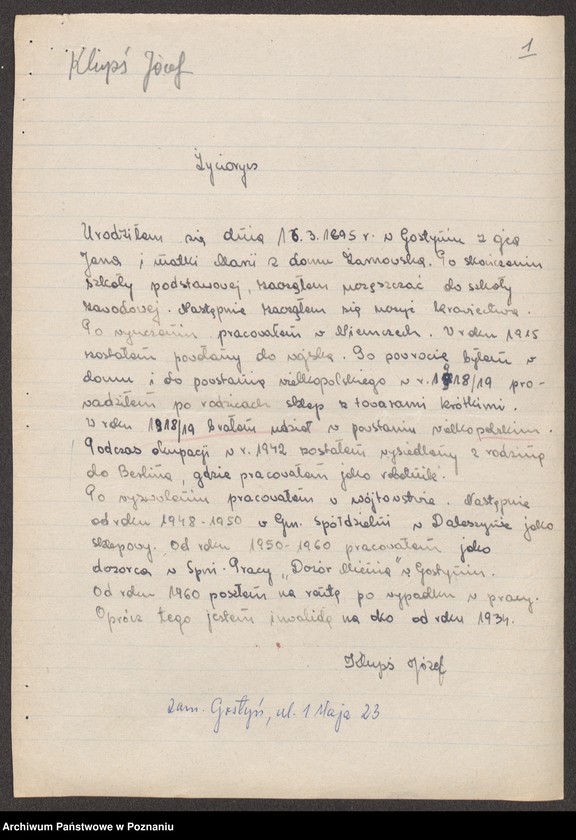 1
Klupś Józef
Życiorys
Urodziłem się dnia 16.3.1895 r. w Gostyniu z ojca
Jana i matki Marii z domu Żarnowska. Po skończeniu
szkoły podstawowej, zacząłem uczęszczać do szkoły
zawodowej. Następnie zacząłem się uczyć krawiectwa.
Po wyuczeniu pracowałem w Niemczech. W roku 1915
zostałem powołany do wojska. Po powrocie byłem w
domu i do powstania wielkopolskiego w r. 1918/19 pro-
wadziłem po rodzicach sklep z towarami krótkimi.
W roku 1918/19 brałem udział w powstaniu wielkopolskim.
Podczas okupacji w r. 1942 zostałem wysiedlony z rodziną
do Berlina, gdzie pracowałem jako robotnik.
Po wyzwoleniu pracowałem w wójtowstwie. Następnie
od roku 1948-1950 w Gm. Spółdzielni w Daleszynie jako
sklepowy. Od roku 1950-1960 pracowałem jako
dozorca w Spni. Pracy „Dozór Mienia" w Gostyniu.
Od roku 1960 poszłem na rentę po wypadku w pracy.
Oprócz tego jestem inwalidą na oko od roku 1934.
Klupś Józef
zam. Gostyń, ul. 1 Maja 23
Archiwum Państwowe w Poznaniu